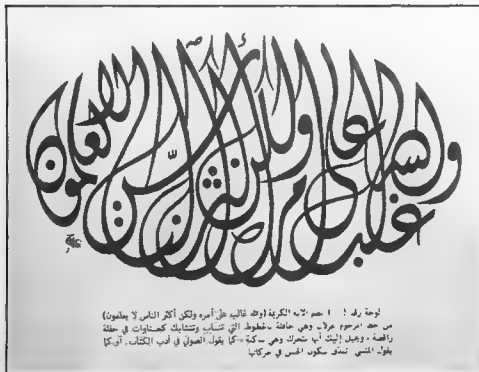 والله غالب على أمره ولكن أكثر الناس لا يعلمون
لوحة رقم ( ) تضم الآية الكريمة (والله غالب على أمره ولكن أكثر الناس لا يعلمون)
من خط المرحوم وهي حافلة بالخطوط التي تنساب وتتشابك كحسناوات في حفلة
راقصة . ويخيل إليك أنها تتحرك وهي ساكنة كما يقول الصولي في أدب الكتاب، أو كما
يقول المتنبي تندى سكون الحسن في حركاتها